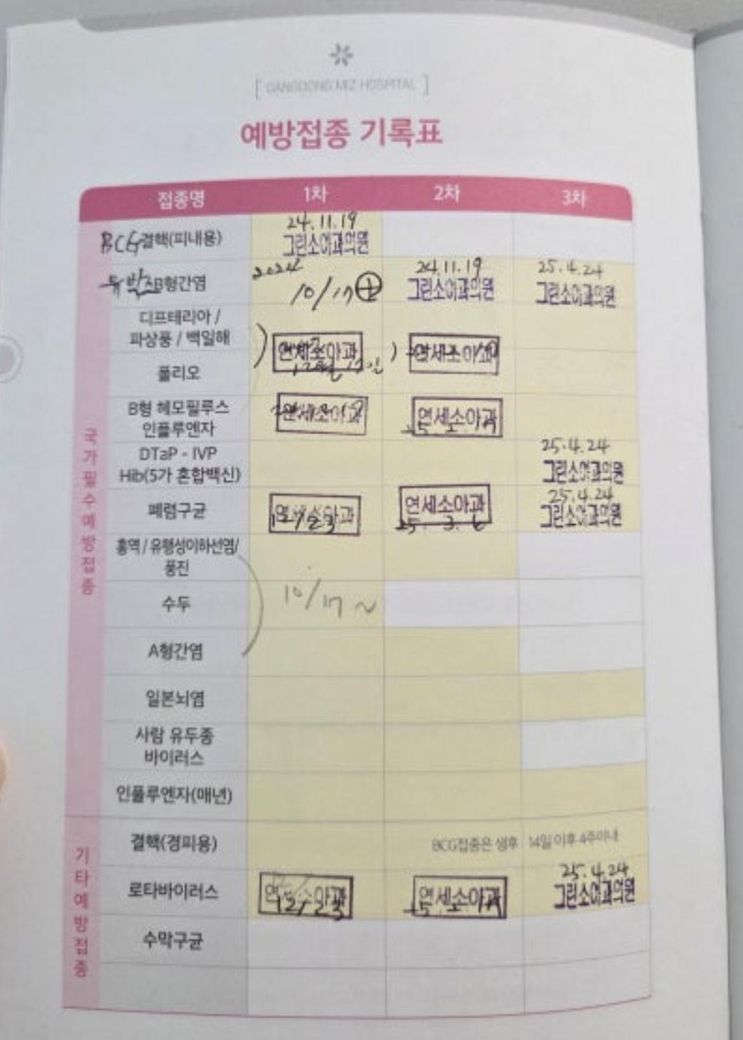 [ GANGDONG MIZ HOSPITAL ]
예방접종 기록표
접종명 1차 2차 3차
국가필수예방접종
BCG결핵(피내용) 24.11.19 그린소아과의원
B형간염 2024 10/17 24.11.19 그린소아과의원 25.4.24 그린소아과의원
디프테리아 /
파상풍 / 백일해
연세소아과 연세소아과
폴리오
B형 헤모필루스
인플루엔자
연세소아과 연세소아과
DTaP - IVP
Hib(5가 혼합백신)
25.4.24
그린소아과의원
폐렴구균 연세소아과 12/23 연세소아과 25. 3. 6 25.4.24 그린소아과의원
홍역 / 유행성이하선염/
풍진
수두 10/17 ~
A형간염
일본뇌염
사람 유두종
바이러스
인플루엔자(매년)
기타예방접종
결핵(경피용) BCG접종은 생후 14일 이후 4주이내
로타바이러스 연세소아과 12/23 연세소아과 25.4.24 그린소아과의원
수막구균